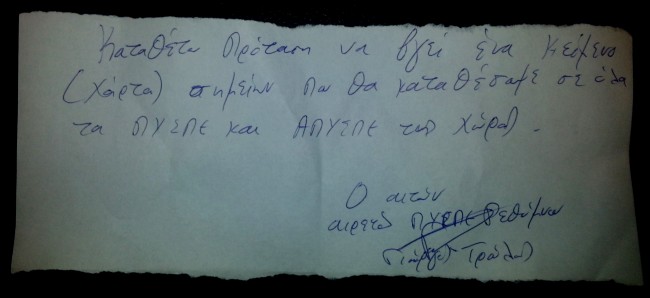 Καταθέτω Πρόταση να βγεί ένα κείμενο
(Χάρτα) σημείων που θα καταθέσουμε σε όλα
τα ΠΥΣΠΕ και ΑΠΥΣΠΕ της Χώρας.
Ο αιτών
αιρετός ΠΥΣΠΕ Ρεθύμνου
Γιώργος